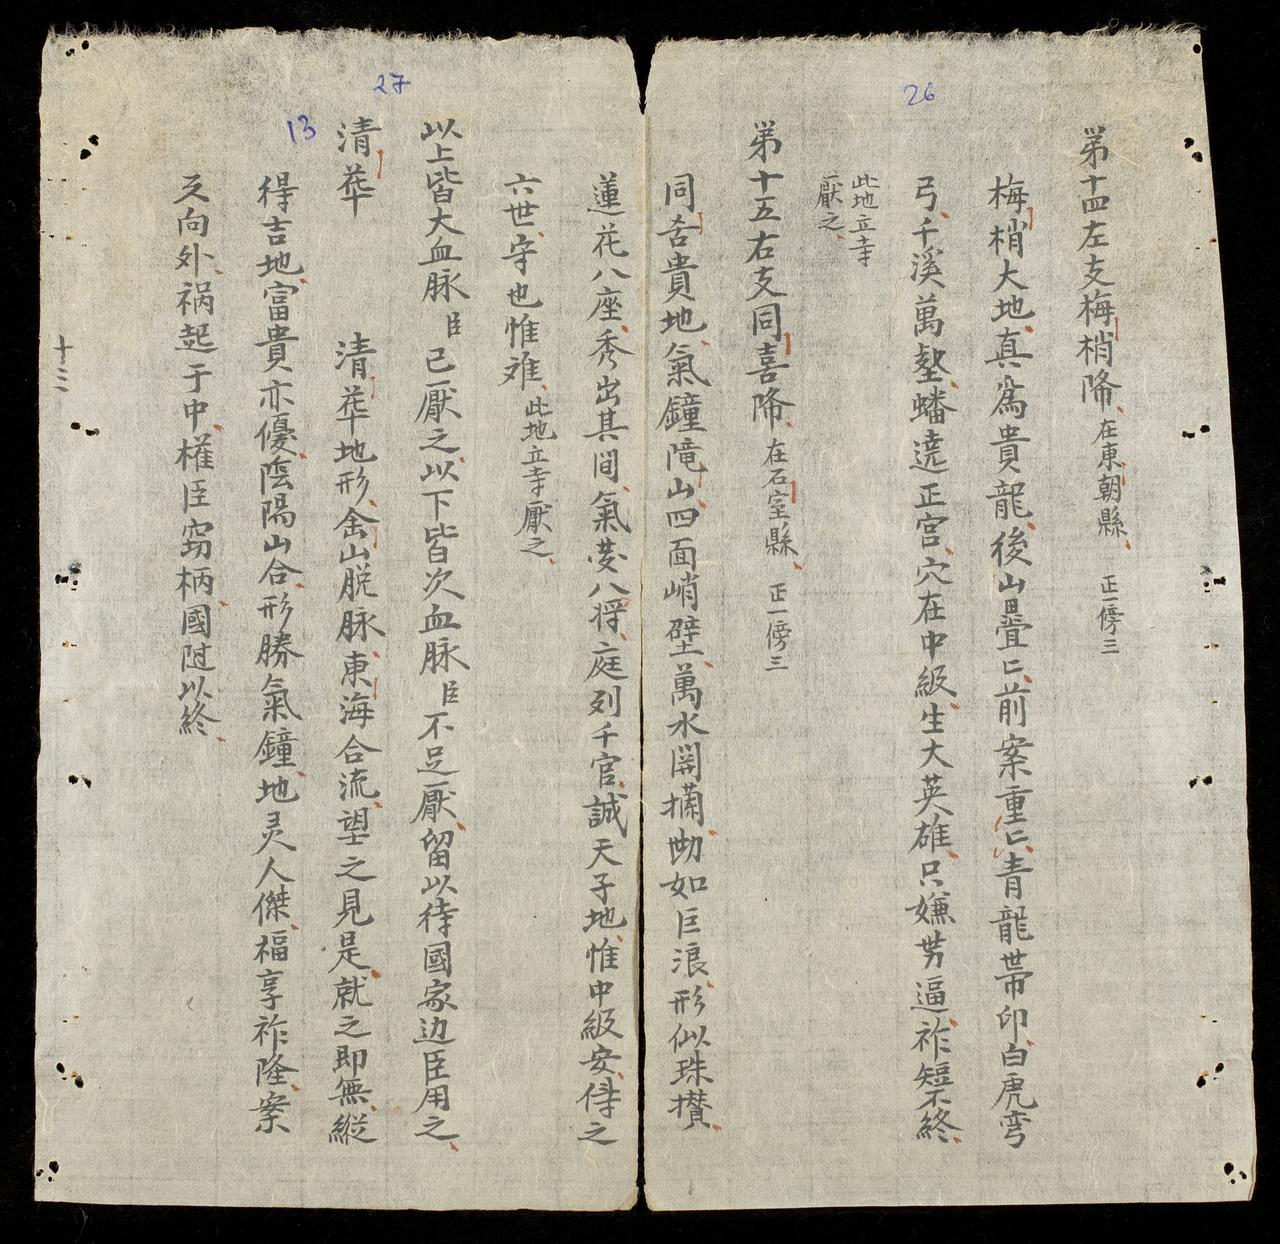 26
第十四左支梅梢降在東朝縣 正一傍三
梅梢大地真爲貴龍後山疊匕前案重匕青龍帶印白虎弯
弓千溪萬壑蟠遶正宮穴在中級生大英雄只嫌势逼祚短不終
此地立寺
厭之
第十五右支同喜降在石室縣 正一傍三
同舍貴地氣鐘山四面峭壁萬水開如巨浪形似珠攅
27
蓮花八座秀出其间氣裝八将庭列千官誠天子地惟中級安得之
六世守也惟难此地立寺厭之
以上皆大血脉臣已厭之以下皆次血脉臣不足厭留以待國家边臣用之
13
清華 清華地形金山脱脉東海合流望之見是就之即無縱
得吉地富貴亦優陰陽山合形勝氣鐘地灵人傑福享祚隆案
又向外祸起于中權臣窃柄國隨以終
十三